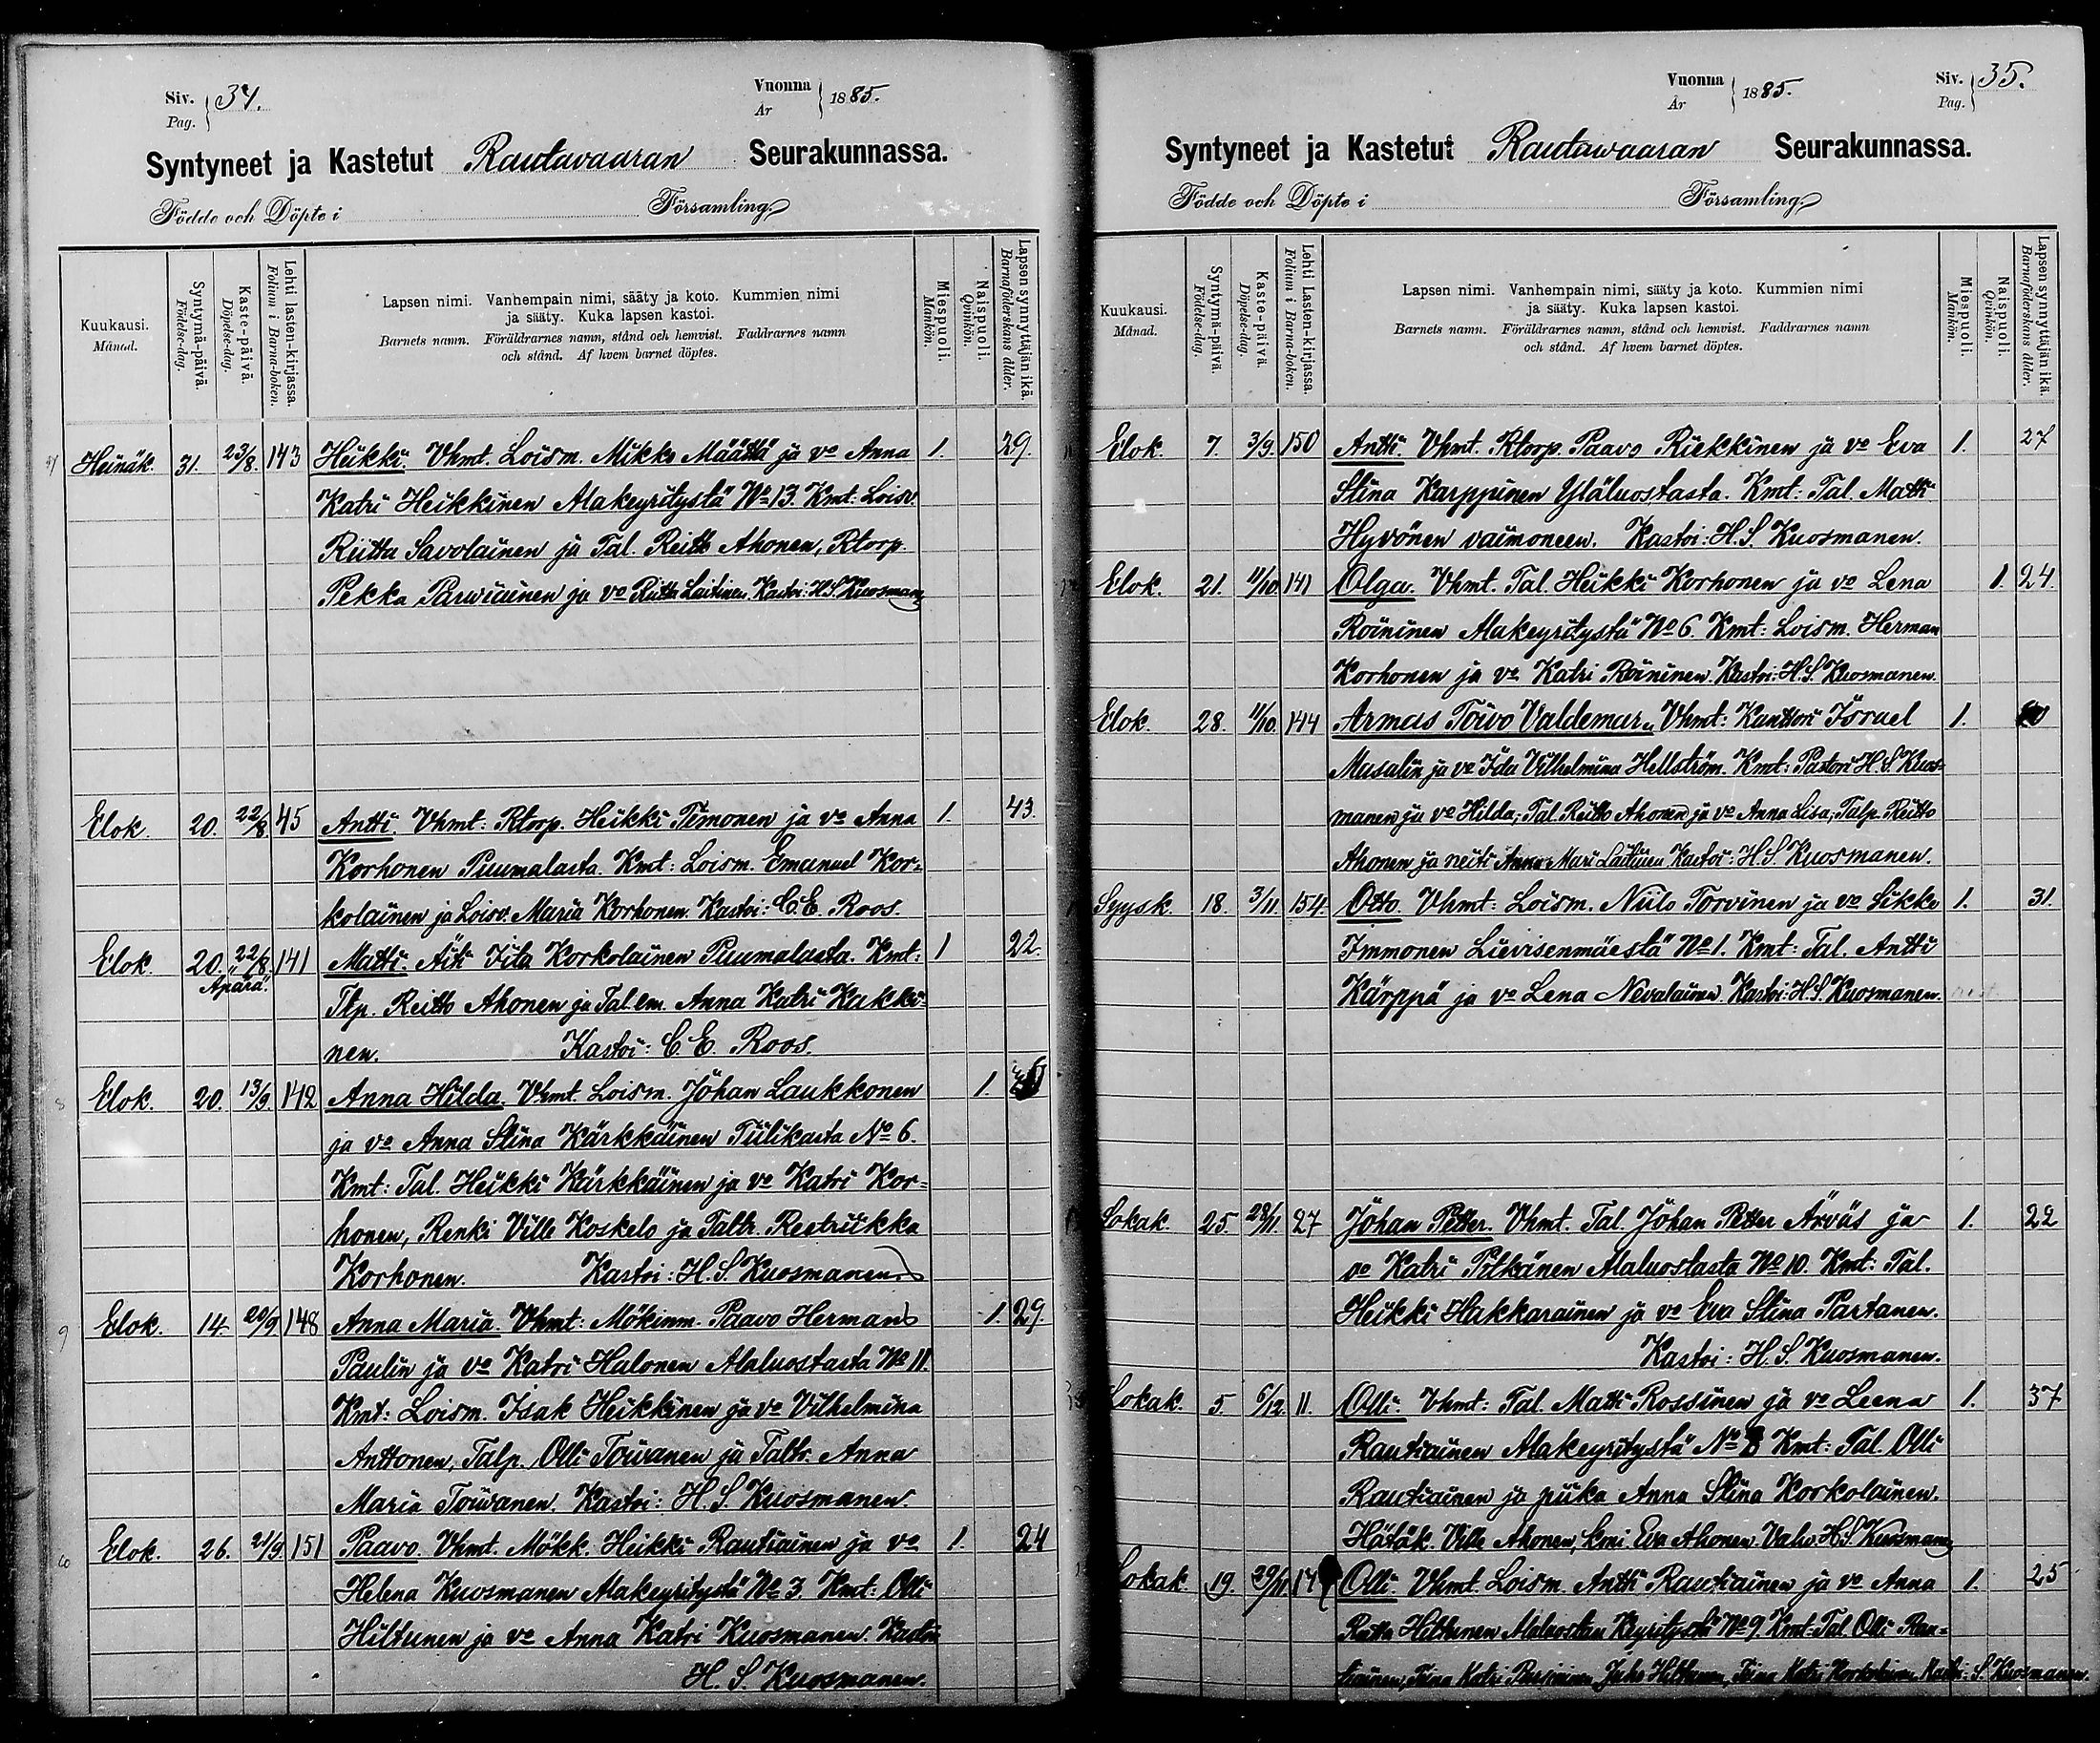 Siv. 34.
Pag.
Vuonna 1885.
År
Syntyneet ja Kastetut Rautavaaran Seurakunnassa.
Födde och Döpte i Församling.
Kuukausi.
Månad.
Syntymä-päivä.
Födelse-dag.
Kaste-päivä.
Döpelse-dag.
Lehti lasten-kirjassa.
Folium i Barna-boken.
Lapsen nimi. Vanhempain nimi, sääty ja koto. Kummien nimi
ja sääty. Kuka lapsen kastoi.
Barnets namn. Föräldrarnes namn, stånd och hemvist. Faddrarnes namn
och stånd. Af hvem barnet döptes.
Miespuoli.
Mankön.
Naispuoli.
Qvinkön.
Lapsen synnyttäjän ikä.
Barnaföderskans ålder.
Heinäk. 31. 23/8. 143 Heikki. Vhmt. Loism. Mikko Määttä ja vo Anna 1. 29.
Katri Heikkinen Alakeyritystä No 13. Kmt: Loisv.
Riitta Savolainen ja Tal. Reitto Ahonen, Rtorp.
Pekka Parwiainen ja vo Riitta Laitinen. Kastoi: H.S. Kuosmanen
Elok. 20. 22/8. 45 Antti. Vhmt: Rtorp. Heikki Timonen ja vo Anna 1. 43.
Korhonen Puumalasta. Kmt: Loism. Emanuel Kor=
kolainen ja Loisv. Maria Korhonen. Kastoi: C.E. Roos.
Elok. 20. 22/8. 141 Matti. Äiti Iita Korkolainen Puumalasta. Kmt: 1 22.
"Äpärä".
Tlp. Reitto Ahonen ja Tal. em. Anna Katri Kakki=
nen. Kastoi: C. E. Roos.
8 Elok. 20. 13/9. 142 Anna Hilda. Vhmt. Loism. Johan Laukkonen 1.
ja vo Anna Stina Kärkkäinen Tiilikasta No 6.
Kmt: Tal. Heikki Kärkkäinen ja vo Katri Kor=
honen, Renki Ville Koskelo ja Taltr. Reetriikka
Korhonen. Kastoi: H. S. Kuosmanen
9 Elok. 14. 20/9 148 Anna Maria. Vhmt: Mökinm. Paavo Herman 1. 29.
Paulin ja vo Katri Halonen Alaluostasta No 11.
Kmt: Loism. Isak Heikkinen ja vo Vilhelmina
Anttonen, Talp. Olli Toivanen ja Taltr. Anna
Maria Toivanen. Kastoi: H. S. Kuosmanen.
Elok. 26. 21/9. 151 Paavo. Vhmt. Mökk. Heikki Rautiainen ja vo 1. 24
Helena Kuosmanen Alakeyritystä No 3. Kmt: Olli
Hiltunen ja vo Anna Katri Kuosmanen. Kastoi
H. S. Kuosmanen.
Vuonna 1885.
År
Siv. 35.
Pag.
Syntyneet ja Kastetut Rautawaaran Seurakunnassa.
Födde och Döpte i Församling.
Kuukausi.
Månad.
Syntymä-päivä.
Födelse-dag.
Kaste-päivä.
Döpelse-dag.
Lehti Lasten-kirjassa.
Folium i Barna-boken.
Lapsen nimi. Vanhempain nimi, sääty ja koto. Kummien nimi
ja sääty. Kuka lapsen kastoi.
Barnets namn. Föräldrarnes namn, stånd och hemvist. Faddrarnes namn
och stånd. Af hvem barnet döptes.
Miespuoli.
Mankön.
Naispuoli.
Qvinkön.
Lapsen synnyttäjän ikä.
Barnaföderskans ålder.
Elok. 7. 3/9. 150 Antti. Vhmt. Rtorp. Paavo Riekkinen ja vo Eva 1. 27
Stina Karppinen Yläluostasta. Kmt: Tal. Matti
Hyvönen vaimoneen. Kastoi: H. S. Kuosmanen.
Elok. 21. 11/10. 141 Olga. Vhmt. Tal. Heikki Korhonen ja vo Lena 1. 24.
Roininen Alakeyritystä No 6. Kmt: Loism. Herman
Korhonen ja vo Katri Roininen. Kastoi: H. S. Kuosmanen.
Elok. 28. 11/10. 144 Armas Toivo Valdemar. Vhmt: Kanttori Israel 1.
Masalin ja vo Ida Vilhelmina Hellström. Kmt: Pastori H. S. Kuos=
manen ja vo Hilda; Tal. Reitto Ahonen ja vo Anna Lisa; Talp. Reitto
Ahonen ja neiti Anna Mari Laitinen Kastoi: H. S. Kuosmanen.
Syysk. 18. 3/11. 154. Otto. Vhmt: Loism. Niilo Torvinen ja vo Sikke 1. 31.
Immonen Lievisenmäestä No 1. Kmt: Tal. Antti
Kärppä ja vo Lena Nevalainen. Kastoi: H. S. Kuosmanen.
Lokak. 25. 28/11. 27 Johan Petter. Vhmt. Tal. Johan Petter Ärväs ja 1. 22
vo Katri Pitkänen Alaluostasta No 10. Kmt: Tal.
Heikki Hakkarainen ja vo Eva Stina Partanen.
Kastoi: H. S. Kuosmanen.
Lokak. 5. 6/12. 11. Olli. Vhmt: Tal. Matti Rossinen ja vo Leena 1. 37
Rautiainen Alakeyritystä No 8 Kmt: Tal. Olli
Rautiainen ja piika Anna Stina Korkolainen.
Hätäk. Ville Ahonen, kmi Eva Ahonen. Vahv. H. S. Kuosmanen
Lokak. 19. 29/11. Olli. Vhmt. Loism. Antti Rautiainen ja vo Anna 1. 25
Riitta Hiltunen Alaluostan Keyritystä No 9. Kmt: Tal. Olli Rau=
tiainen, Juho Hiltunen, Kastoi: S. Kuosmanen.